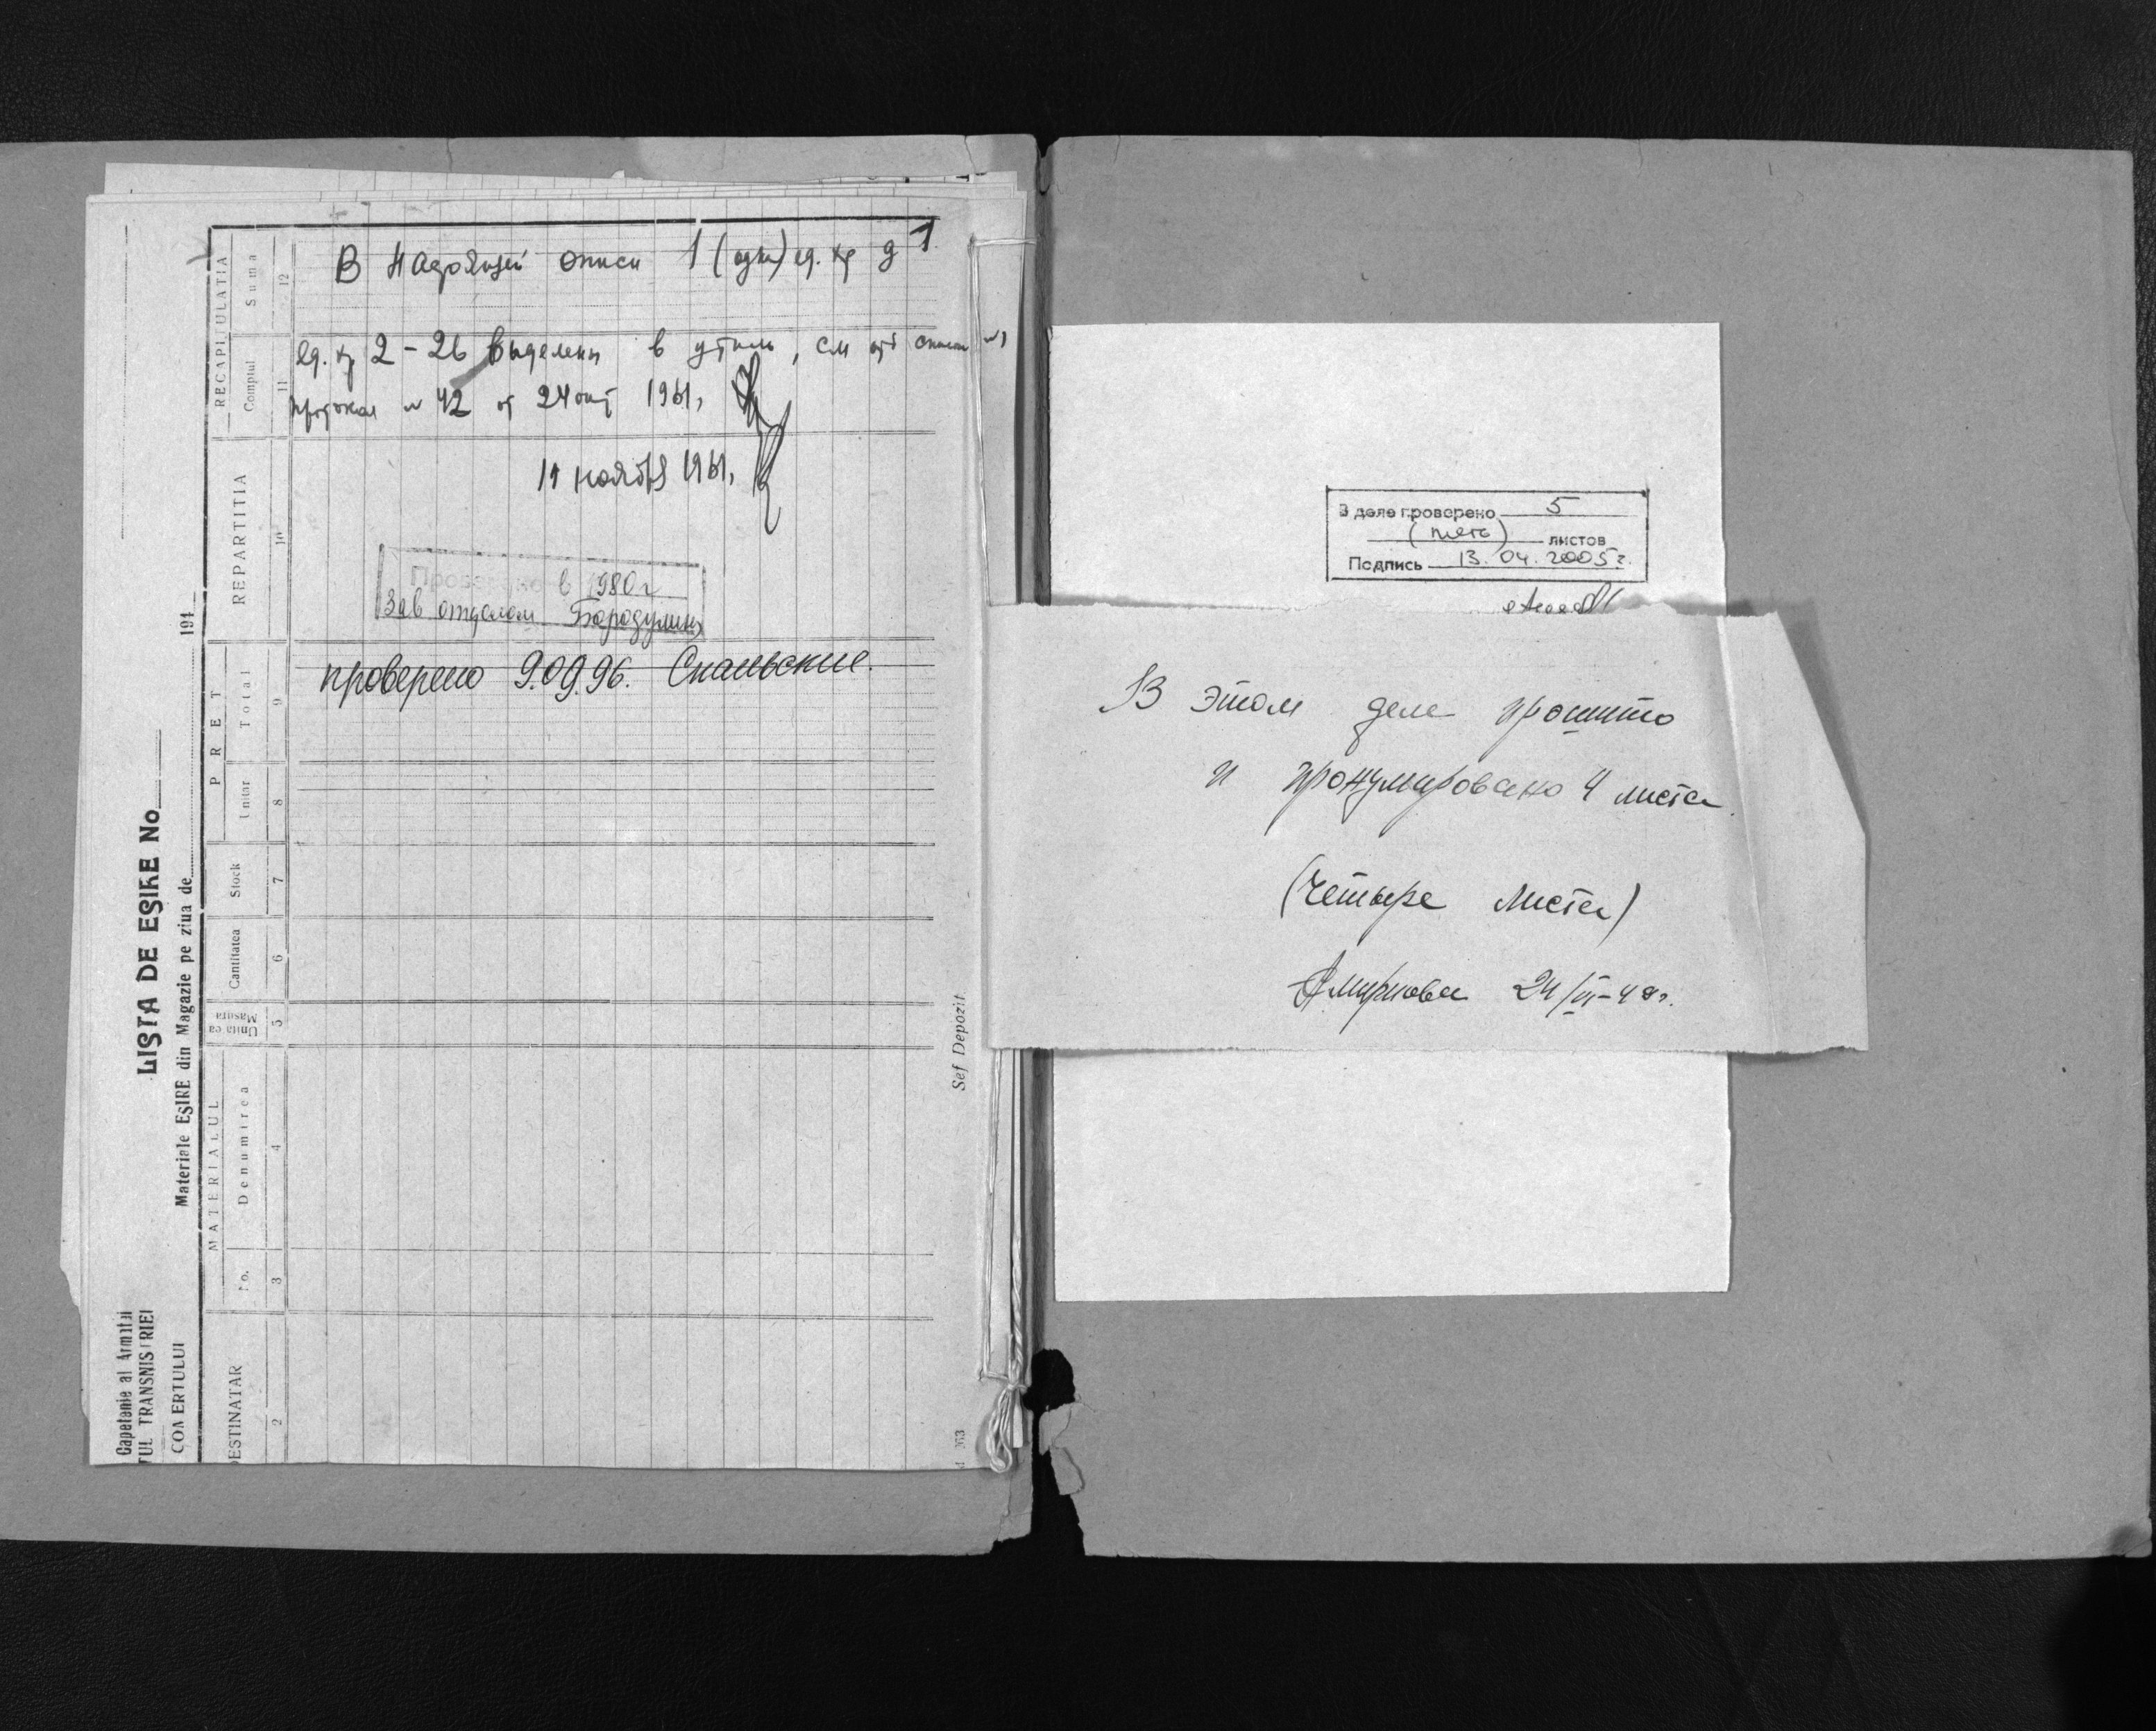 В настоящей описи 1 (одна) ед. хр д 1
ед. хр 2-26 выделены в утиль, см
протокол № 42 от 24 окт 1961,
19 ноября 1961,
Проверено в 1980 г
Зав отделом Бородулин
проверено 9.09.96. Скальские.
Capetenie al Armatei
TUL TRANSNISTRIEI
COA ERTULUI
LISTA DE EŞIRE No
Materiale EŞIRE din Magazie pe ziua de 194
DESTINATAR
MATERIALUL
PRET
REPARTITIA
RECAPITULATIA
No.
Denumirea
Unitatea Masura
Cantitatea
Stock
Unitar
Total
Comptul
Suma
2 3 4 5 6 7 8 9 10 11 12
Sef Depozit
263
В деле проверено 5
(пять) листов
Подпись 13.04.2005г.
В этом деле прошито
и пронумеровано 4 листа
(четыре листа)
Смирнова 24/VI-48г.